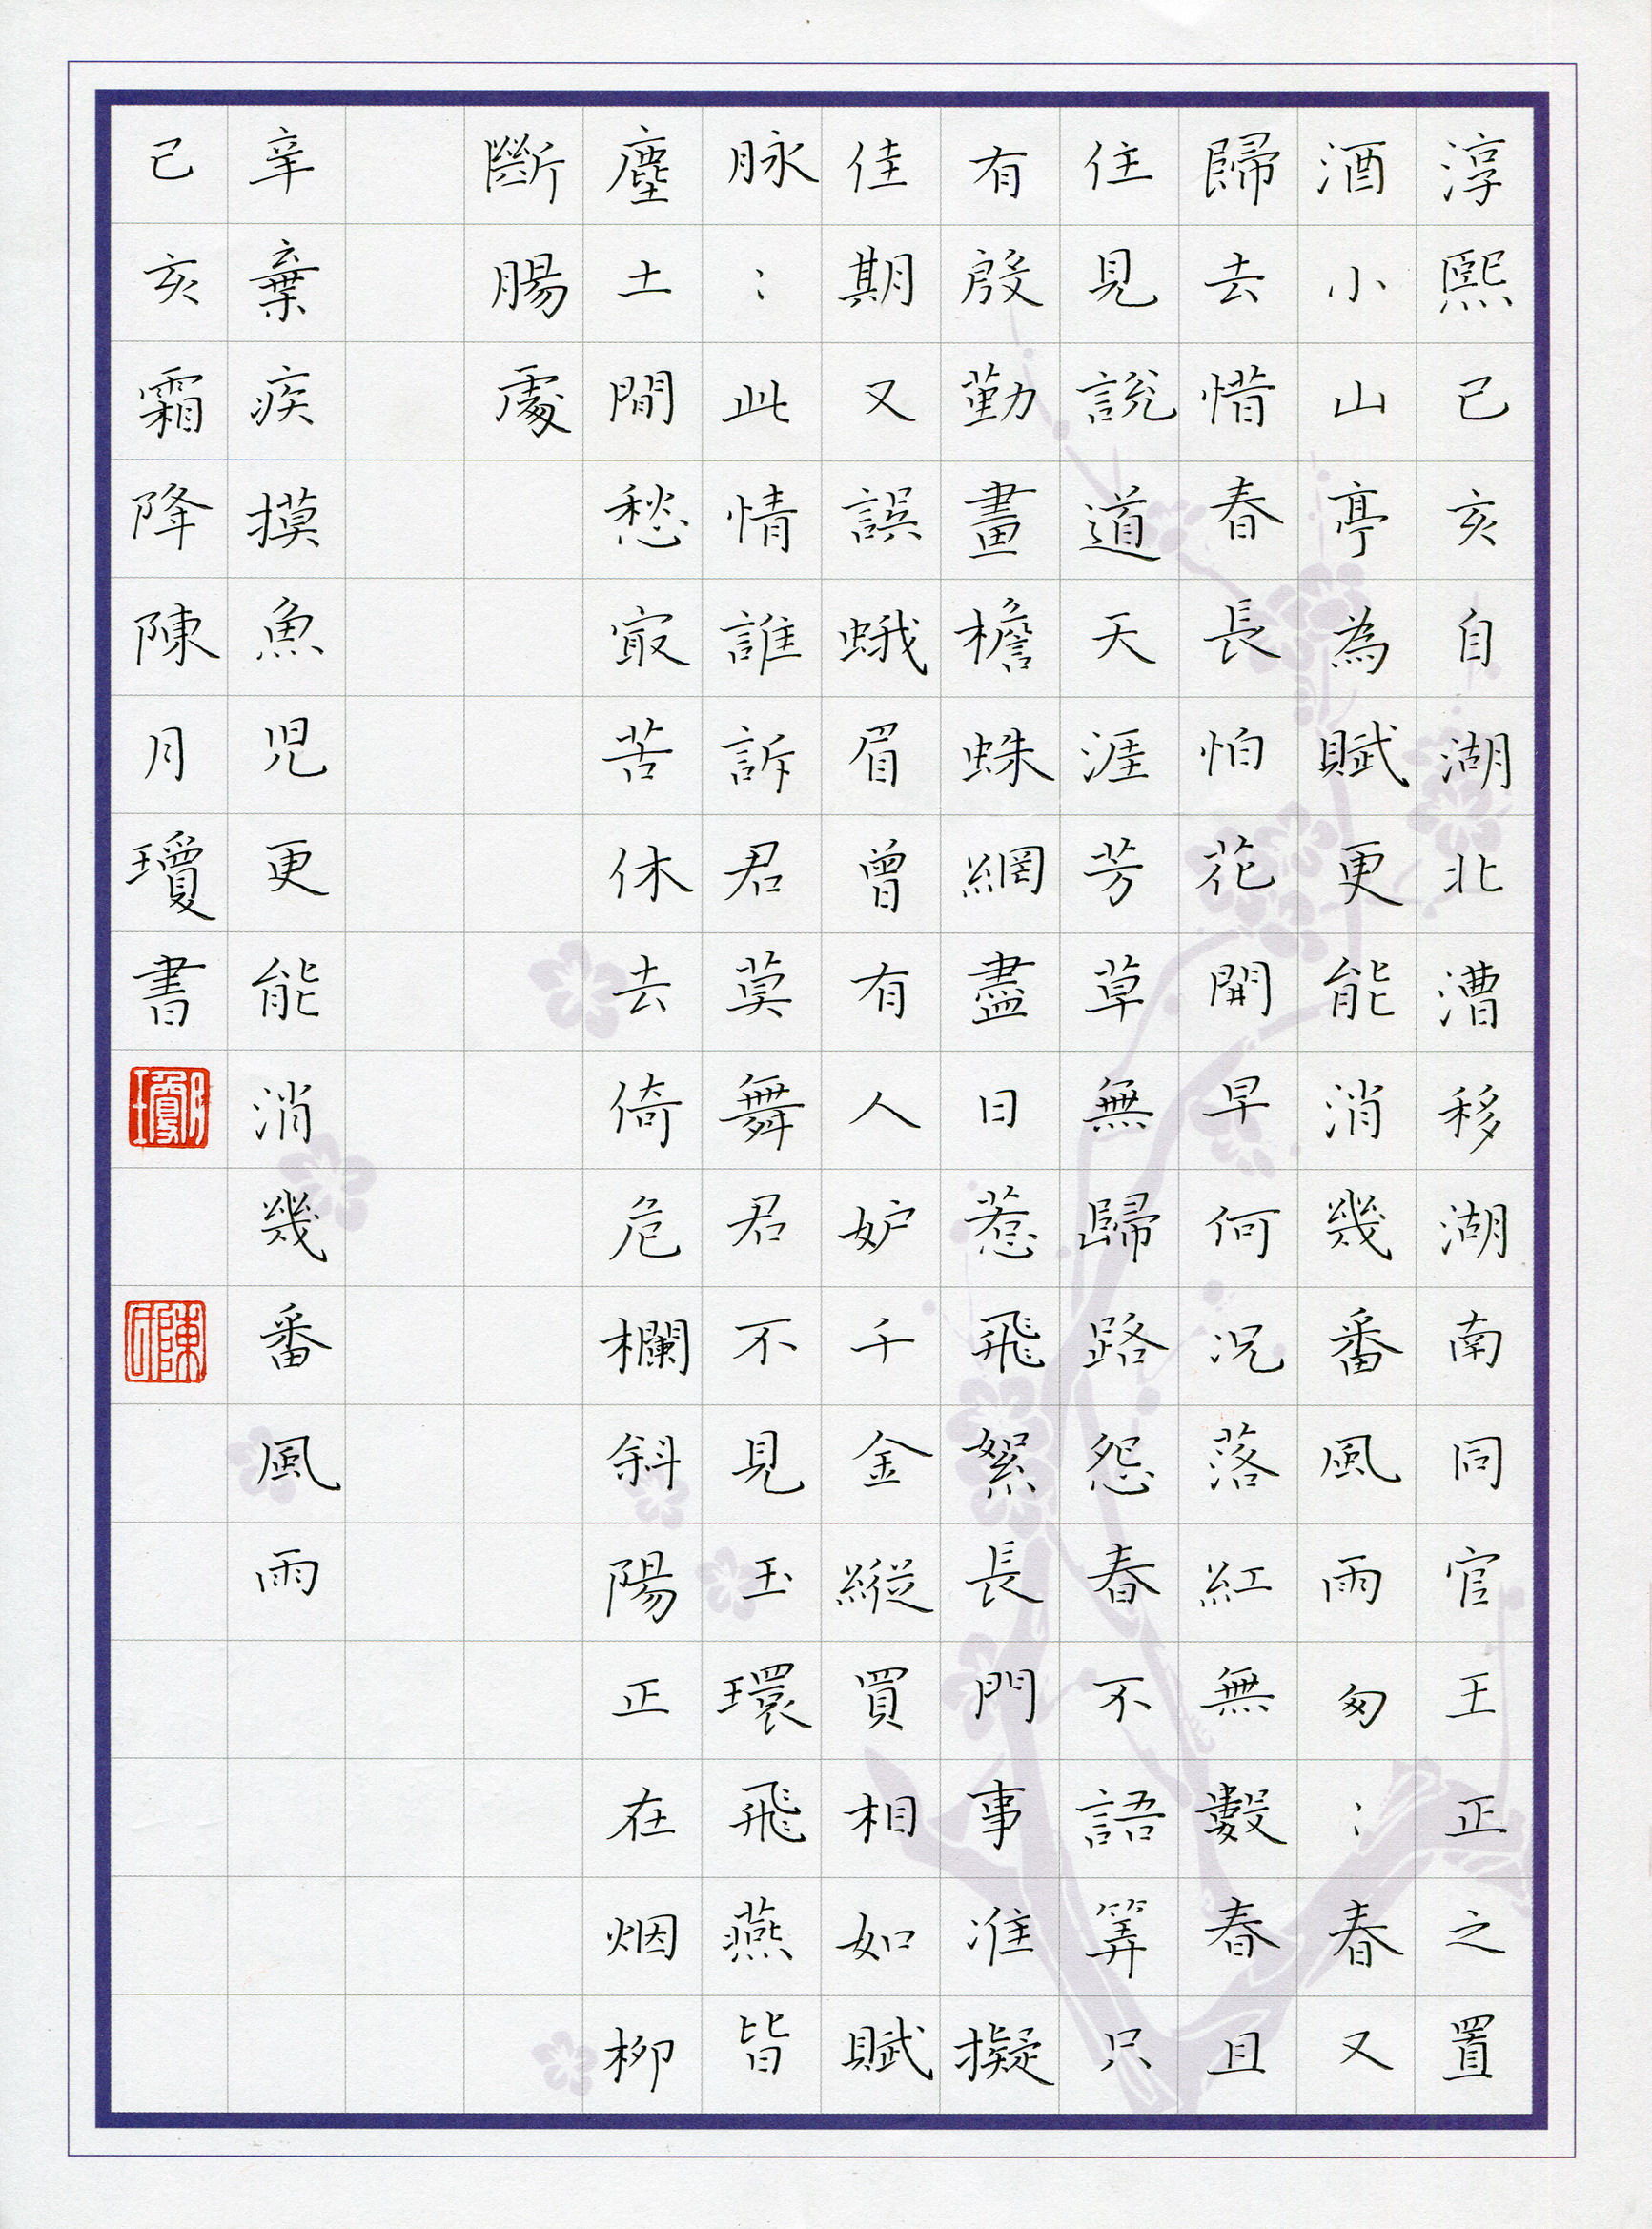 淳熙己亥自湖北漕移湖南同官王正之置
酒小山亭為賦更能消幾番風雨匆：春又
歸去惜春長怕花開早何況落紅無數春且
住見說道天涯芳草無歸路怨春不語筭只
有殷勤畫檐蛛網盡日惹飛絮長門事准擬
佳期又誤蛾眉曾有人妒千金縱買相如賦
脉：此情誰訴君莫舞君不見玉環飛燕皆
塵土閒愁最苦休去倚危欄斜陽正在烟柳
斷腸處
辛棄疾摸魚児更能消幾番風雨
己亥霜降陳月瓊書
月瓊
陳印